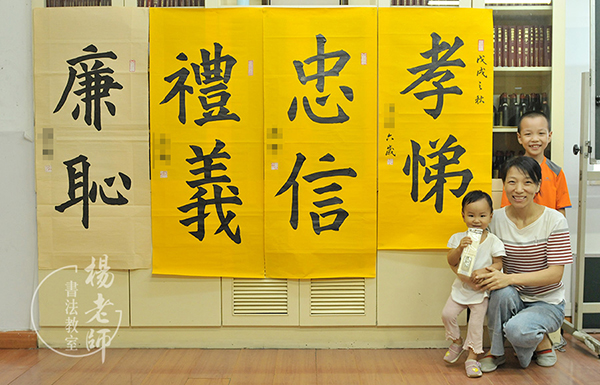 孝悌
戊戌之秋
六歲
忠信
禮義
廉恥
楊老師
書法教室